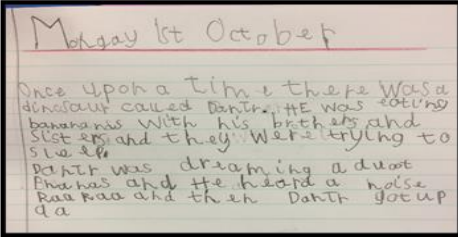 Mongay 1st October
Once upon a time there was a
dinosaur called DanIr. HE was eating
banananis with his brthers and
sisters and they were trying to
sleep.
DanIr was dreaming aduot
Bnanas and He heard a noise
Raa Raa and then DanIr got up
da